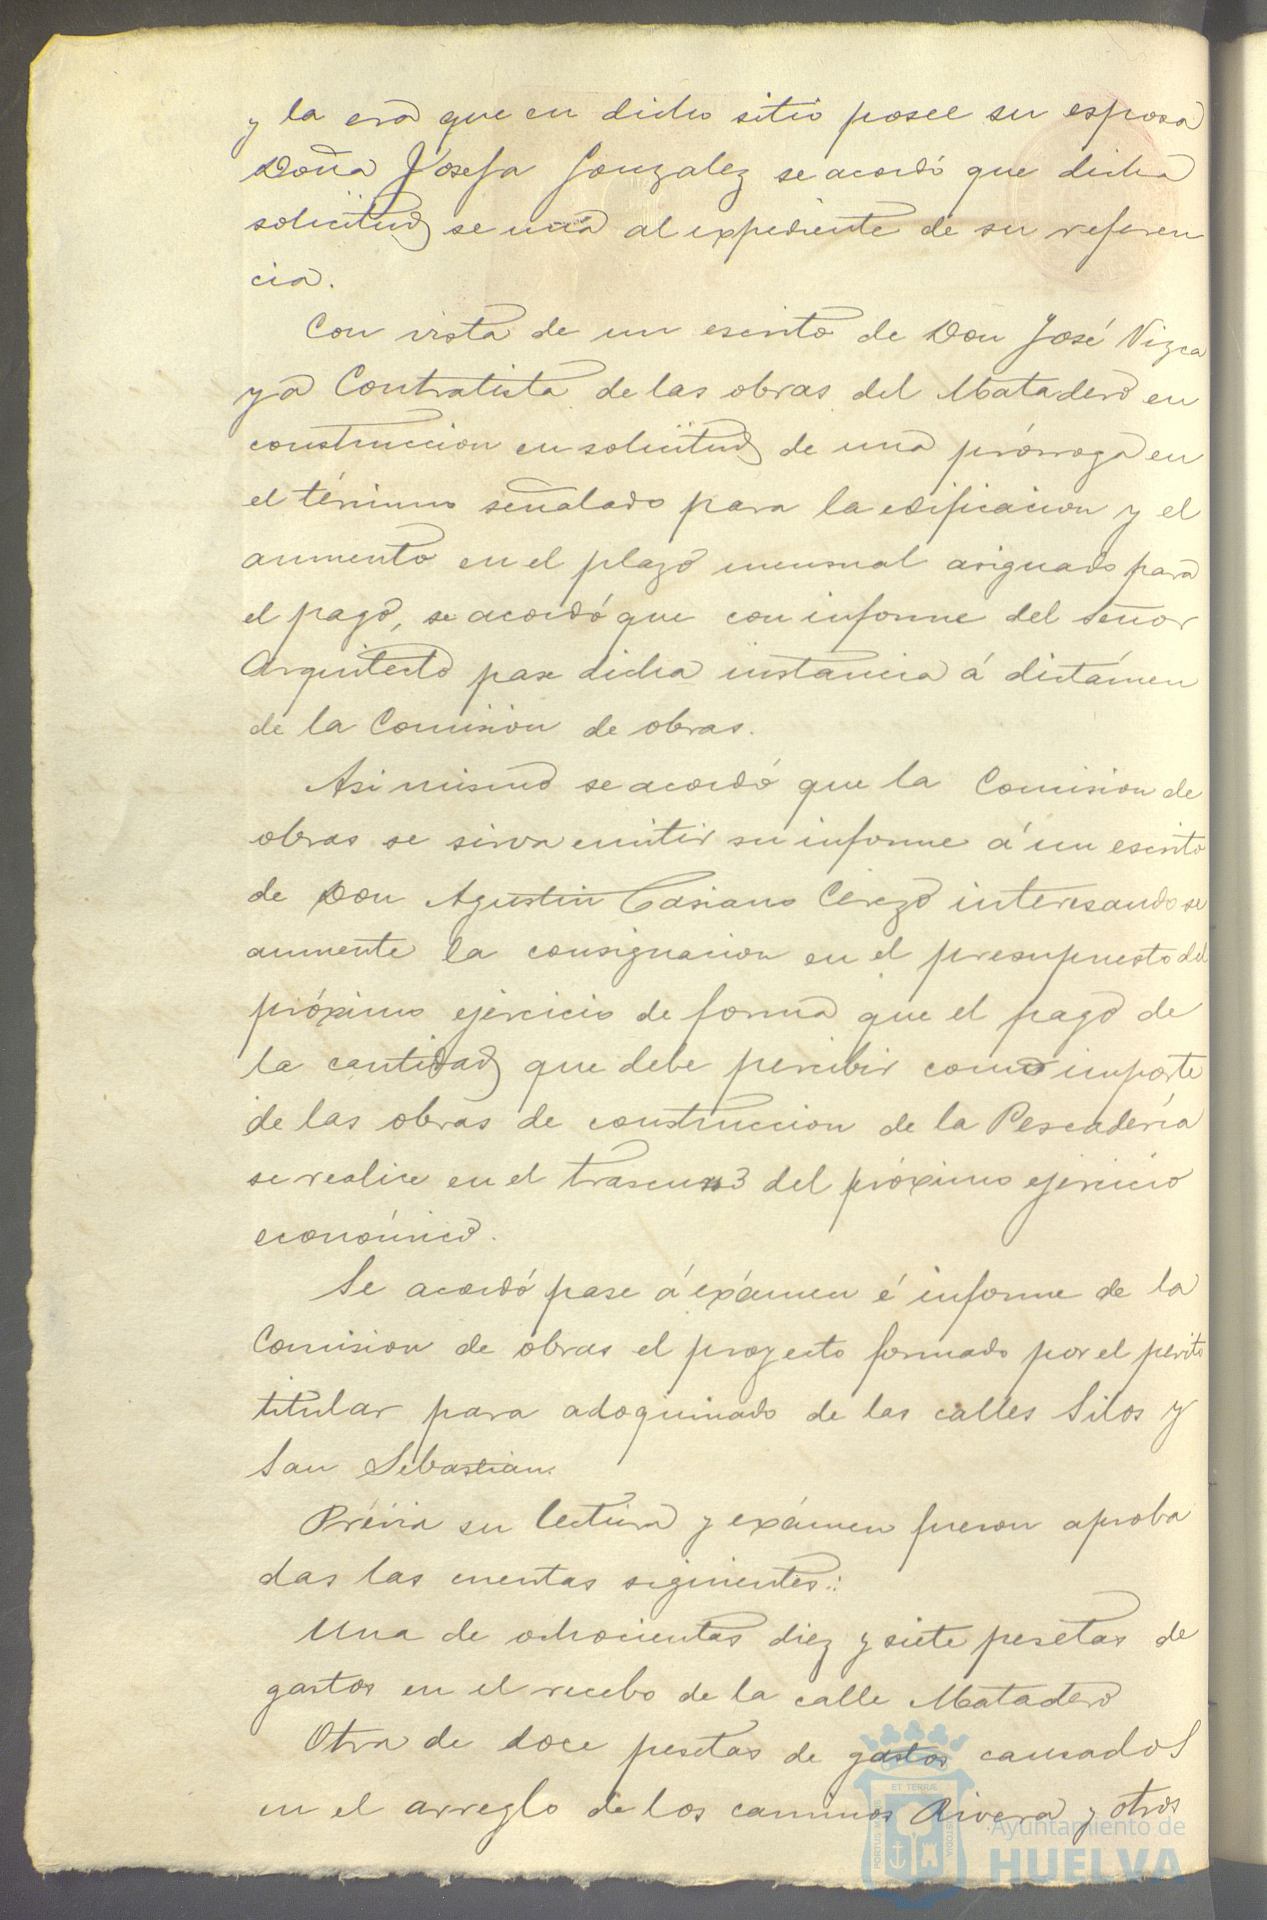 y la era que en dicho sitio posee su esposa
Doña Josefa Gonzalez se acordó que dicha
solicitud se una al expediente de su referen
cia.
Con vista de un escrito de Don José Vizca
ya Contratista de las obras del Matadero en
construccion en solicitud de una prórroga en
el término señalado para la edificacion y el
aumento en el plazo mensual asignado para
el pago, se acordó que con informe del Señor
Arquitecto pase dicha instancia á dictámen
de la Comision de obras.
Asi mismo se acordó que la Comision de
obras se sirva emitir su informe á un escrito
de Don Agustin Casiano Cerezo interesando se
aumente la consignacion en el presupuesto del
próximo ejercicio de forma que el pago de
la cantidad que debe percibir como importe
de las obras de construccion de la Pescadería
se realice en el trascurso del próximo ejercicio
económico.
Se acordó pase á exámen é informe de la
Comision de obras el proyecto formado por el perito
titular para adoquinado de las calles Silos y
San Sebastian.
Prévia su lectura y exámen fueron aproba
das las cuentas siguientes:
Una de ochocientas diez y siete pesetas de
gastos en el recebo de la calle Matadero
Otra de doce pesetas de gastos causados
en el arreglo de los caminos Rivera y otros
ET TERRÆ
PORTUS MARIS
CUSTODIA
Ayuntamiento de
HUELVA